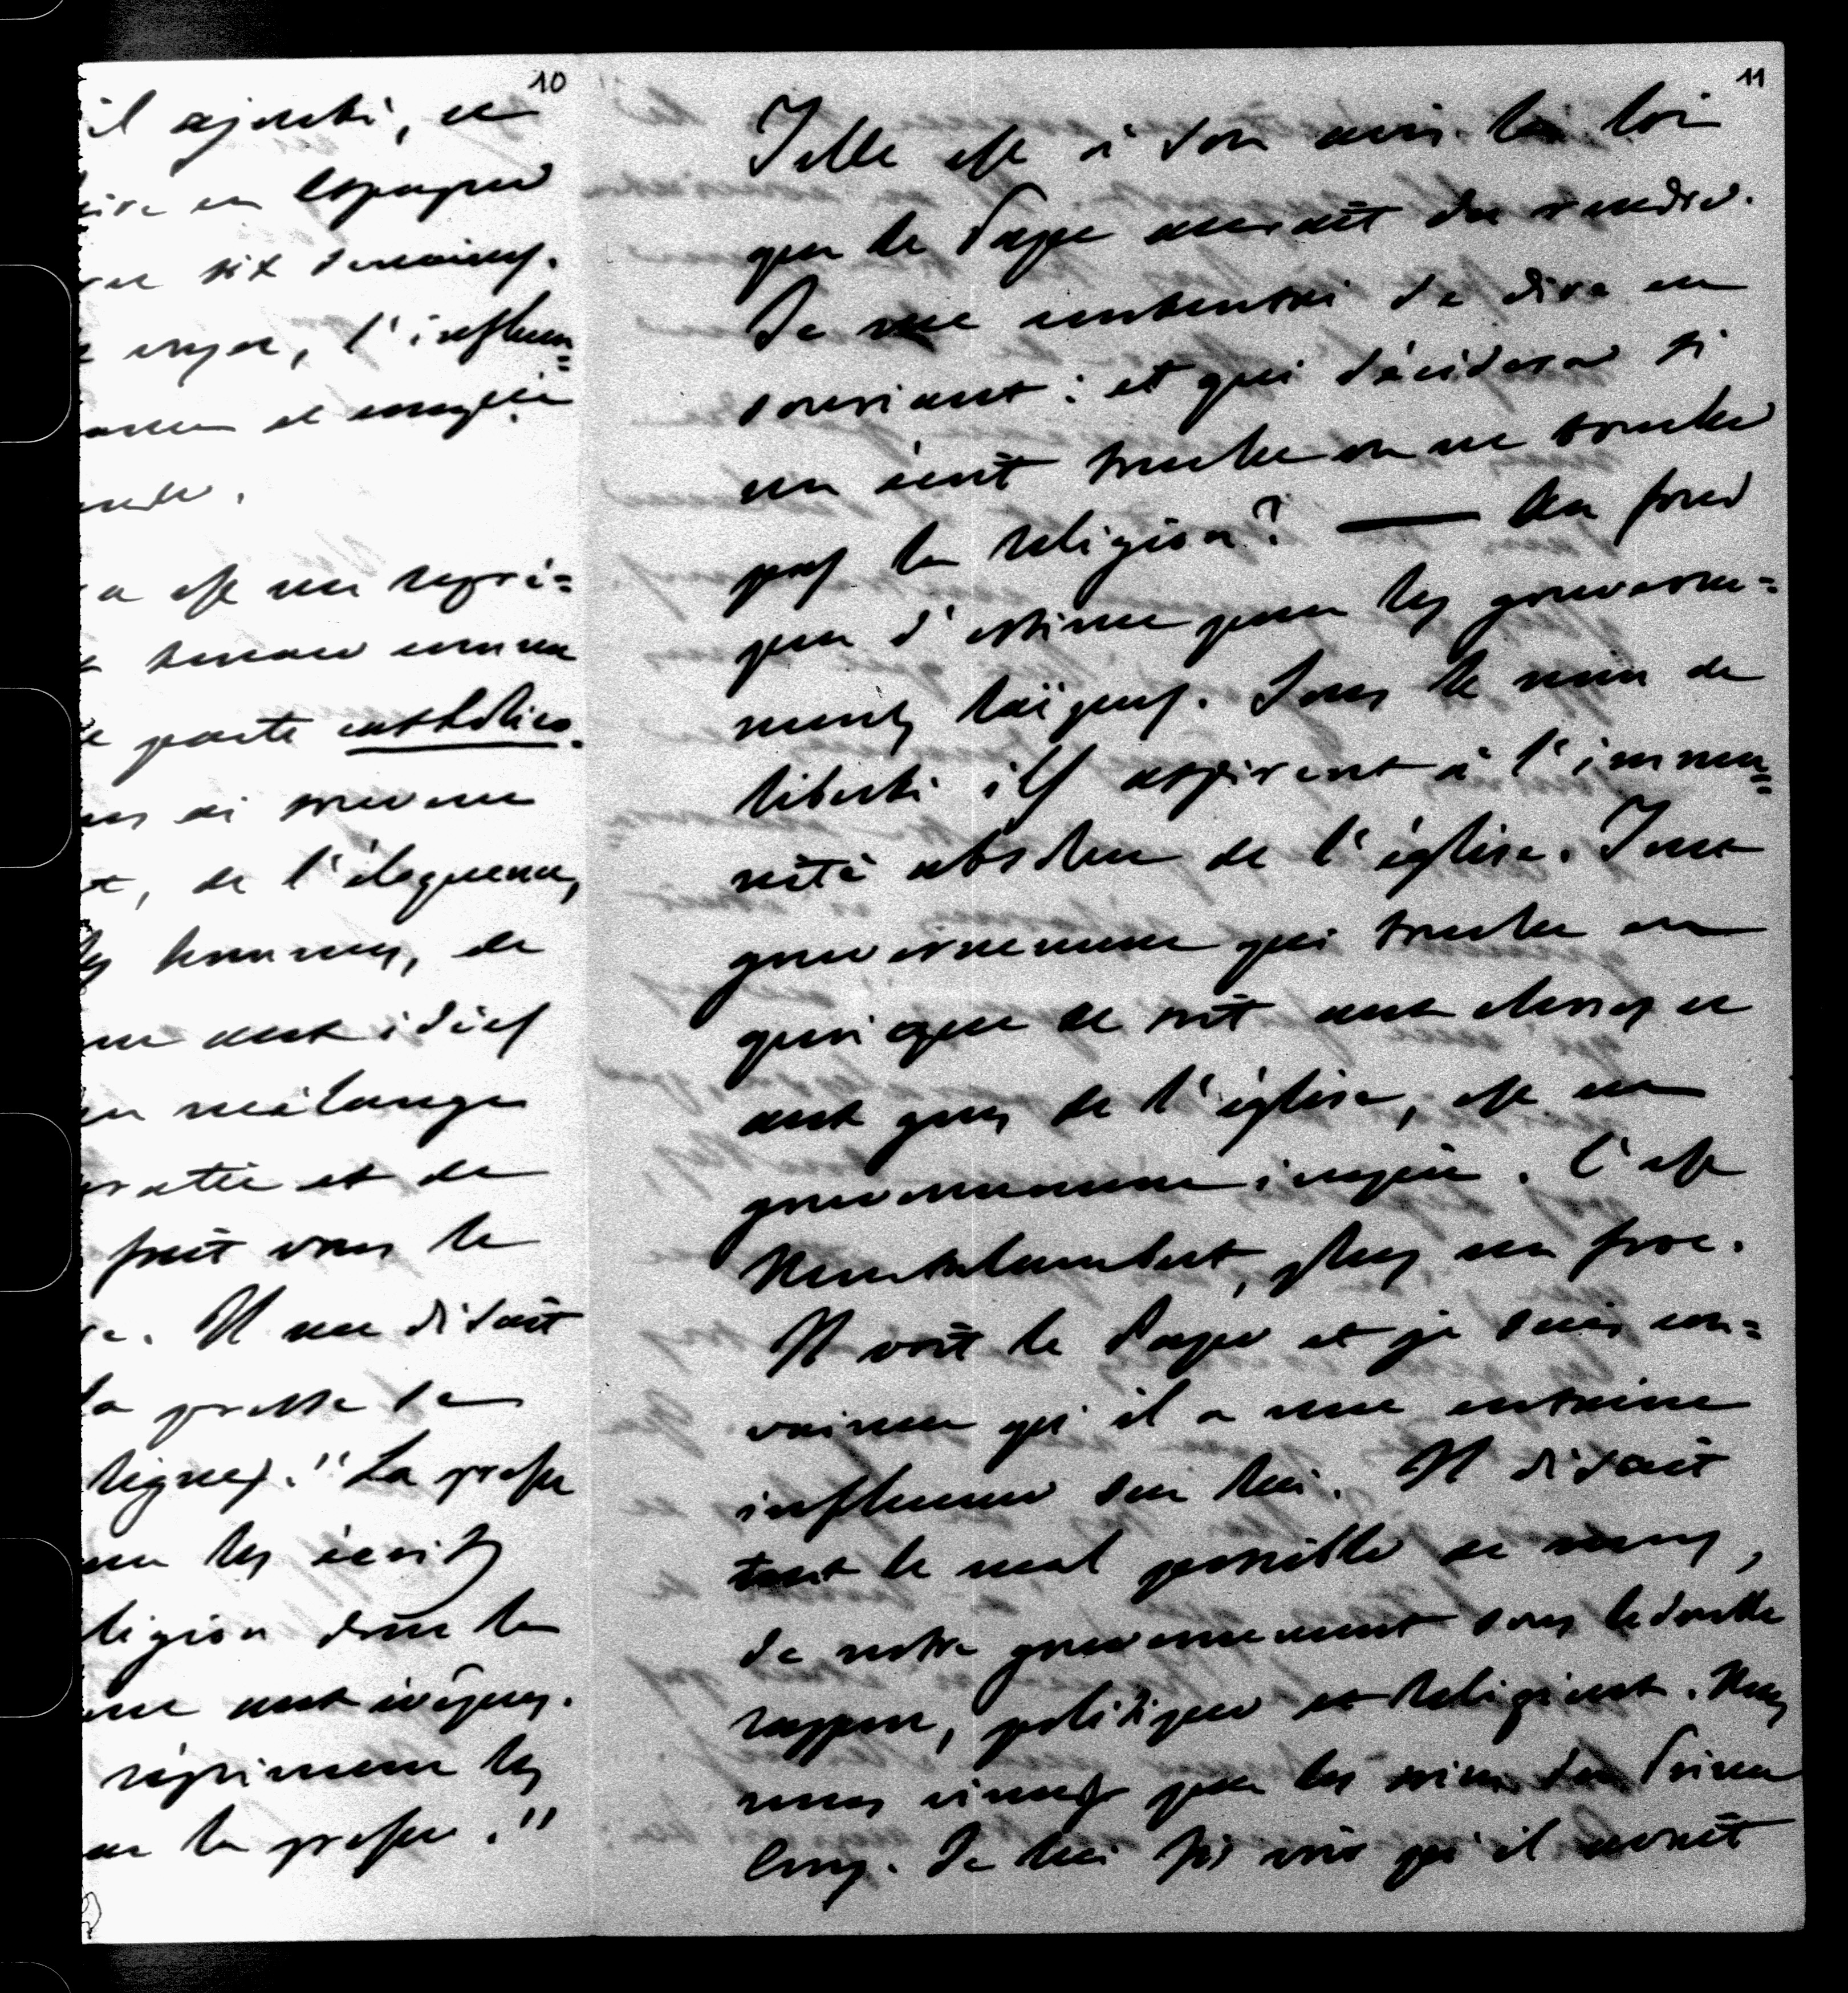 10
il ajouté, et
ire en Espagne
que six semaines.
l'influen=
et empie

a est un repré=
tenace comme
le parte catholico.
ai trouvé
t, de l'éloquence,
les hommes, de
aux idées
un mélange
cratie et de
fait vous le
. Il me disait
la presse de
lignes." La presse
les écrits
ligion dont le
aux évêques.
répriment les
de la presse."
11
Telle est à son avis la loi
que le Pape aurait du rendre.
Je me contentai de dire en
souriant: et qui décidera si
un écrit touche ou ne touche
pas la religion? — Au fond
peu d'estime pour les gouverne=
ments laïques. Sous le nom de
liberté ils aspirent à l'immu=
nité absolue de l'église. Tout
gouvernement qui touche en
quoi que ce soit aux choses et
aux gens de l'église, est un
gouvernement impie. C'est
Montalembert, plus un froc.
Il voit le Pape et je suis con=
vaincu qu'il a une certaine
influence sur lui. Il disait
tout le mal possible de nous,
de notre gouvernement sous le double
rapport, politique et religieux. Nous
nous vîmes chez le Prince
Je lui fis voir qu'il avait